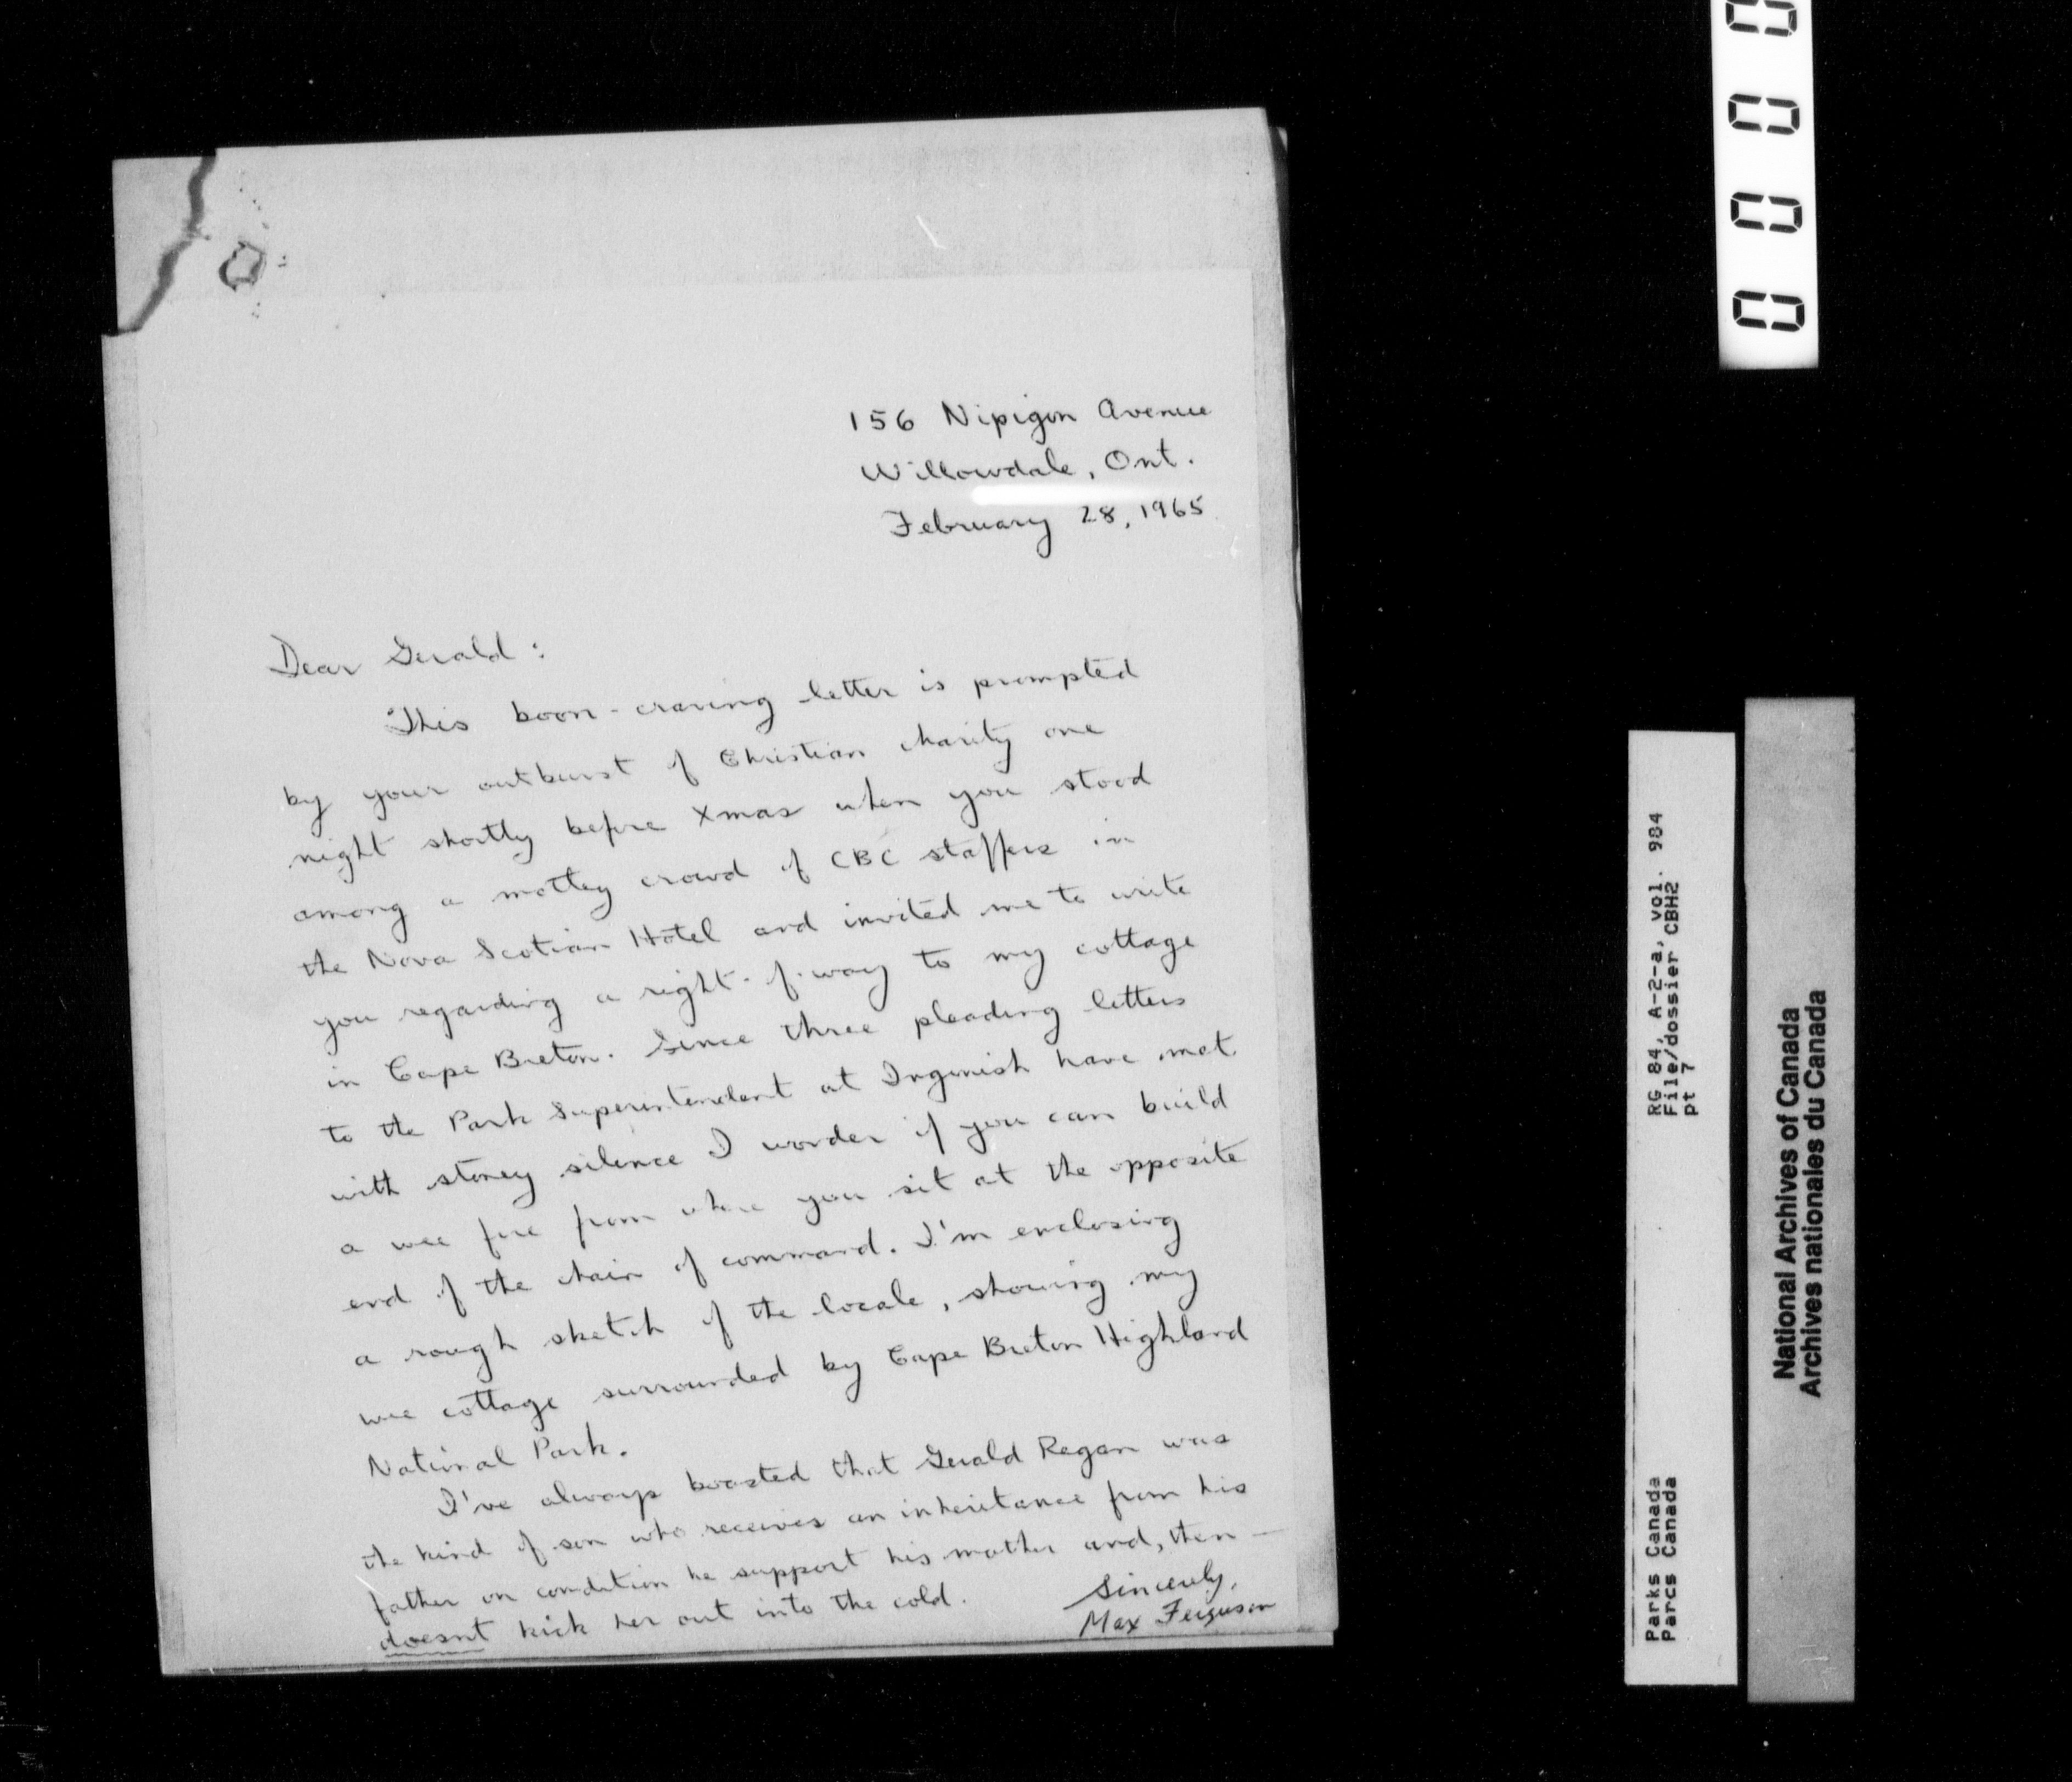 156 Nipigon Avenue
Willowdale, Ont.
February 28, 1965
Dear Gerald:
This boon-craving letter is prompted
by your outburst of Christian charity one
night shortly before Xmas when you stood
among a motley crowd of CBC staffers in
the Nova Scotian Hotel and invited me to write
you regarding a right-of-way to my cottage
in Cape Breton. Since three pleading letters
to the Park Superintendent at Ingonish have met
with stoney silence I wonder if you can build
a wee fire from where you sit at the opposite
end of the chain of command. I'm enclosing
a rough sketch of the locale, showing my
wee cottage surrounded by Cape Breton Highland
National Park.
I've always boasted that Gerald Regan was
the kind of son who receives an inheritance from his
father on condition he support his mother and, then —
doesnt kick her out into the cold.
Sincerely,
Max Ferguson
0 0 0 0
RG 84, A-2-a, vol. 984
File/dossier CBH2
pt 7
Parks Canada
Parcs Canada
National Archives of Canada
Archives nationales du Canada